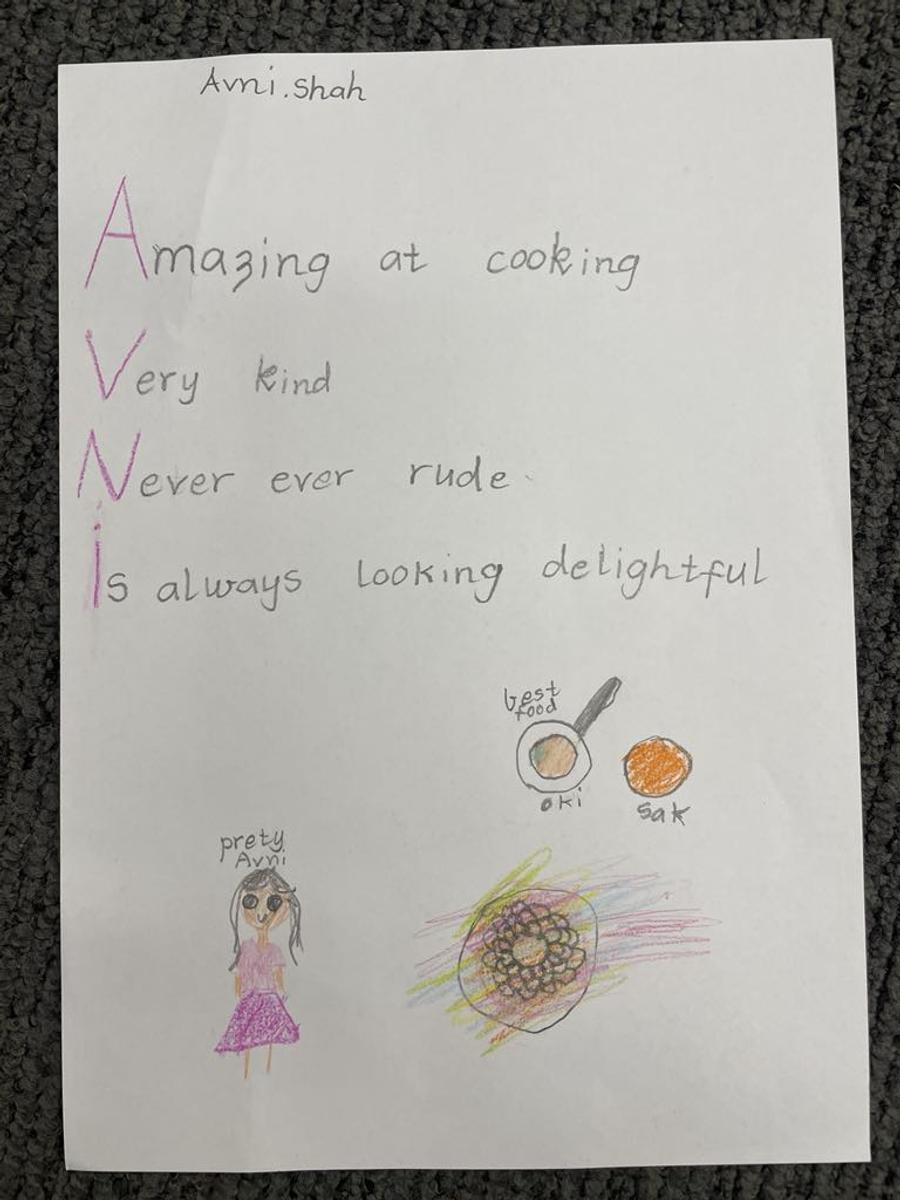 Avni.shah
Amazing at cooking
Very kind
Never ever rude
is always looking delightful
best
food
oki
sak
prety
Avni